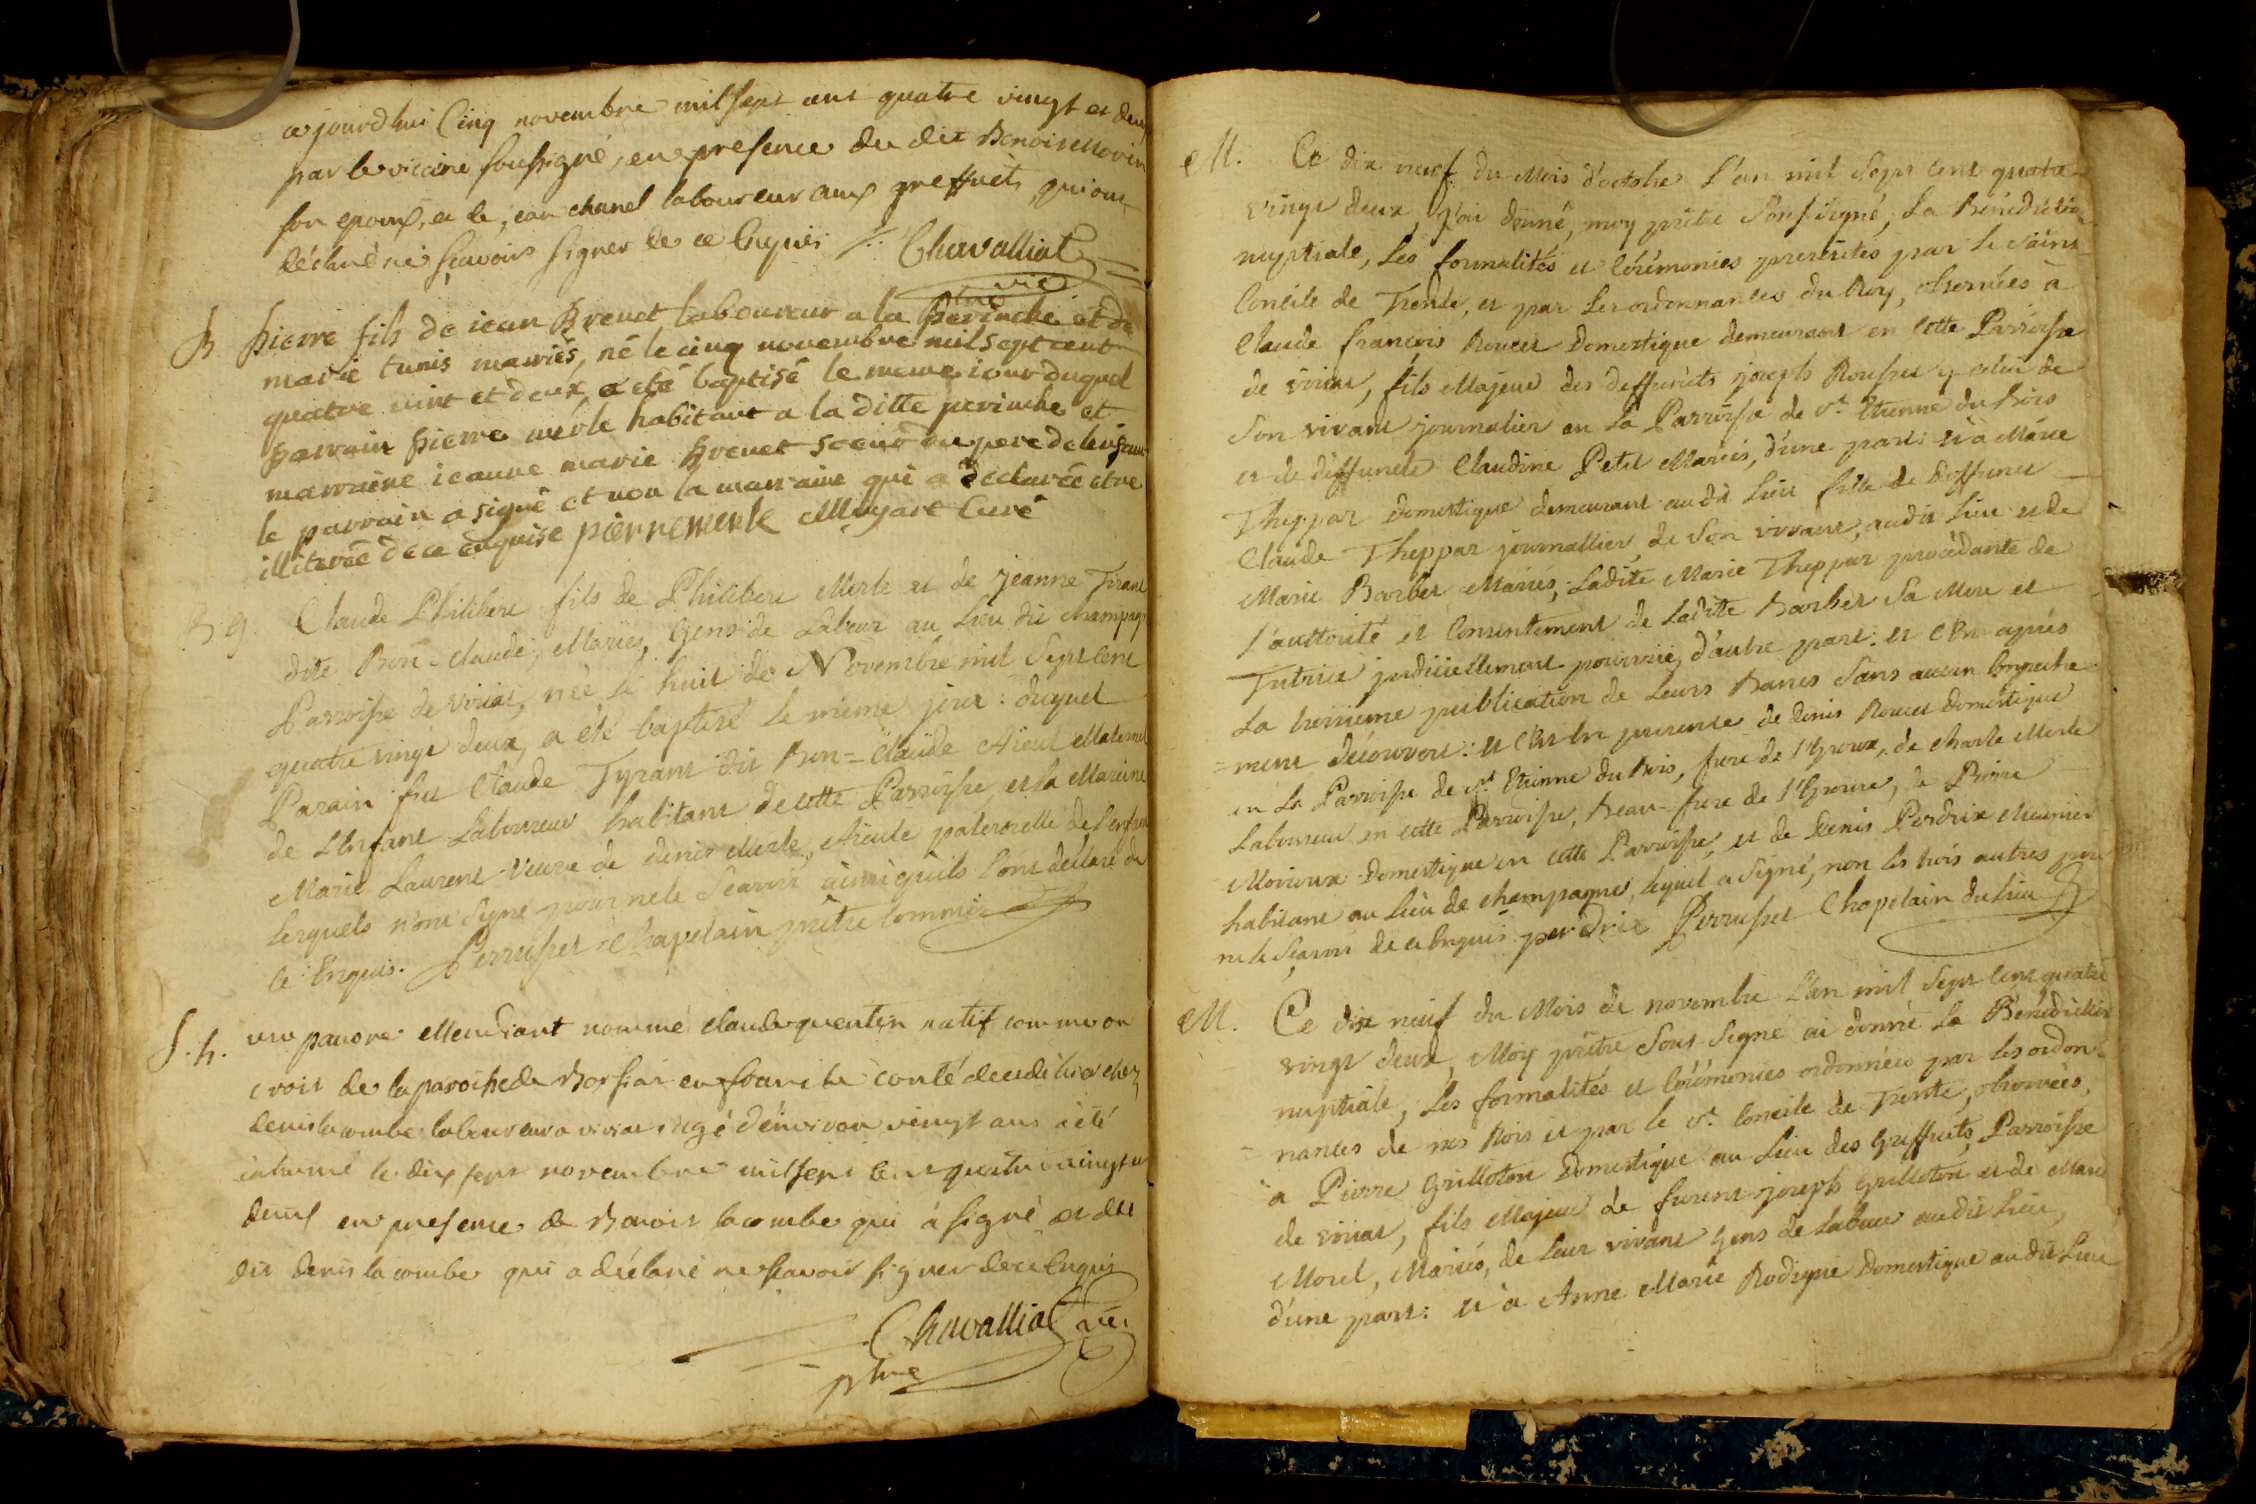 ce jourdhui Cinq novembre mil sept cent quatre vingt et deux
par le vicaire soussigné, en presence du dit Benoit Morin
son epoux, et de jean chanel laboureur aux greffiets, qui ont
déclaré ne scavoir signer de ce Enquis /: Chavalliat
vic
B pierre fils de iean Brevet laboureur a la perinche et de
marie tunis mariés, né le cinq novembre mil sept cent
quatre vint et deux a eté baptisé le meme iour duquel
parrain pierre merle habitant a la ditte perinche et
marraine ieanne marie Brevet soeur du pere de lenfant
le parrain a signé et non la marraine qui a declarée etre
illiterée de ce enquise pierre merle Moyard Curé
B g. Claude Philibert fils de Philibert Merle et de Jeanne Tirant
dite Bon-claude, Mariés, Gens de Labeur au Lieu dit champagne
Parroisse de viriat, né le huit de Novembre mil Sept cent
quatre vingt deux, a été baptisé le même jour: duquel
Parain fut Claude Tyrant dit Bon=claude Aïeul Maternel
de L'Enfant Laboureur habitant de cette Parroisse, et la Maraine
Marie Laurent veuve de denis Merle, Aïeule paternelle de l'enfant
lesquels n'ont Signé pour ne le Sçavoir ainsi qu'ils l'ont déclaré de
ce Enquis. Perruset Chapelain prêtre commis
S. h. un pauvre Mendiant nommé claude quentin natif comme on
croit de la paroisse de en comté decedé hier chez
denis lacombe laboureur a viriat agé d'environ vingt ans a été
inhumé le dix sept novembre mil sept cent quatre vingt et
deux en presence de Benoit lacombe qui a signé et du
dit denis lacombe qui a déclaré ne scavoir signer de ce Enquis
Chavalliat vic.
ptre
M. Ce dix neuf du Mois d'octobre L'an mil Sept cent quatre
vingt deux, j'ai donné, moy prêtre Soussigné, La Bénédiction
nuptiale, Les formalités et Cérémonies prescrites par le Saint
Concile de Trente, et par Les ordonnances du Roy, observées à
Claude françois Rousset Domestique demeurant en cette Parroisse
de viriat, fils Majeur des deffunts joseph Rousset y celui de
Son vivant journalier en La Parroisse de St. Etienne du Bois
et de deffuncte Claudine Petit Mariés, d'une part: et à Marie
Theppar Domestique demeurant audit Lieu fille de Deffunct
Claude Theppar journallier, de Son vivant, audit Lieu et de
Marie Barbet Mariés; Ladite Marie Theppar procédante de
l'authorité et Consentement de Ladite Barbet Sa Mere et
Tutrice judiciellement pourvüe, d'autre part: et C'En après
La troisieme publication de Leurs Bancs Sans aucun Empeche
=ment découvert: et C'En En presence de denis Rousset Domestique
en La Parroisse de St. Etienne du Bois, frere de l'Epoux, de charle Merle
Laboureur en cette Parroisse, Beau-frere de l'Epouse, de Pierre
Moiroux Domestique en cette Parroisse, et de Denis Perdrix Meunier
habitant au Lieu de champagne, lequel a Signé, non les trois autres pour
ne le Sçavoir de ce Enquis. perdrix Perruset Chapelain du lieu
M. Ce dix neuf du Mois de novembre L'an mil Sept Cent quatre
vingt deux, Moy prêtre Sous-Signé ai donné La Bénédiction
nuptiale, Les formalités et Cérémonies ordonnées par les ordon-
=nances de nos Rois et par le St. Concile de Trente, observées,
à Pierre Grilloton Domestique au Lieu des Greffiets, Parroisse
de viriat, fils Majeur de furent joseph Grilloton et de Marie
Morel, Mariés, de Leur vivant Gens de Labeur audit Lieu,
d'une part: et à Anne Marie Rodigue Domestique audit Lieu